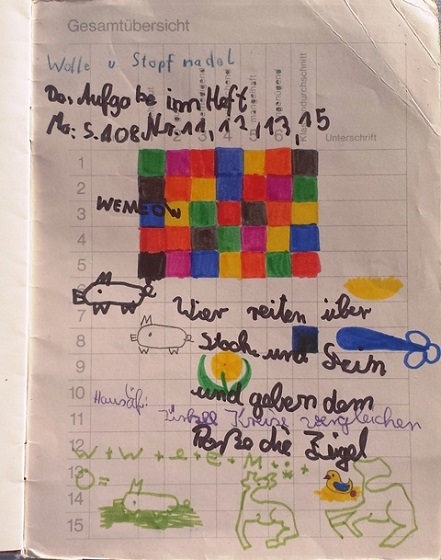 Gesamtübersicht
Wolle u Stopfnadel
Das Aufgabe im Heft
Ma: S.108 Nr. 11, 12, 13, 15
Unterschrift
1
2
WEMEOW
3
4
5
6
7
Wier reiten über
8
Stock und Stein
9
10
und gebem dem
Hausauf:
11
Zirkel Kreise vergleichen
12
Roße die Zügel
W + W + e + E + M
13
O =
14
15